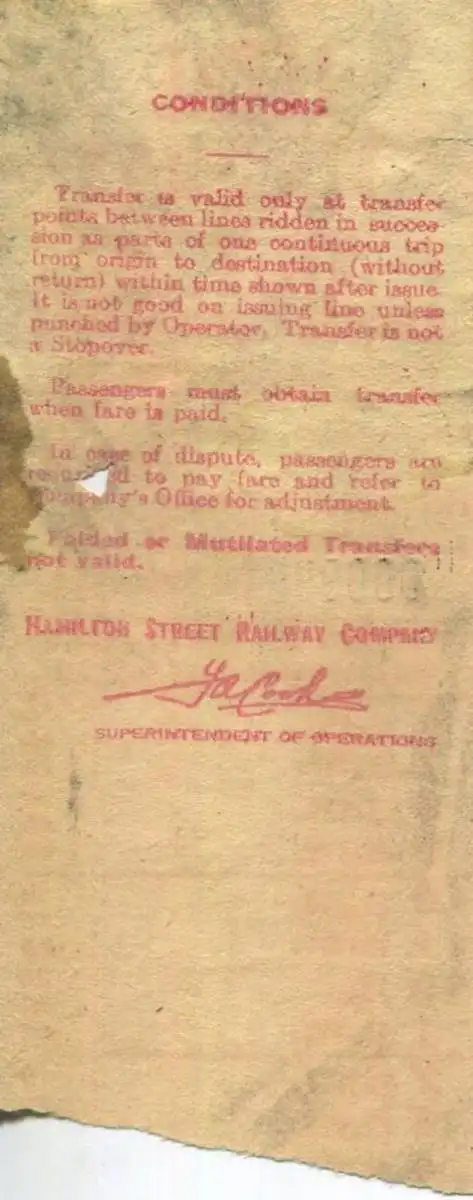 CONDITIONS
Transfer is valid only at transfer
points between lines ridden in succes-
sion as parts of one continuous trip
from origin to destination (without
return) within time shown after issue.
It is not good on issuing line unless
punched by Operator. Transfer is not
a Stopover.
Passengers must obtain transfer
when fare is paid.
In case of dispute, passengers are
to pay fare and refer to
Company's Office for adjustment.
Folded or Mutilated Transfers
not valid.
HAMILTON STREET RAILWAY COMPANY
SUPERINTENDENT OF OPERATIONS